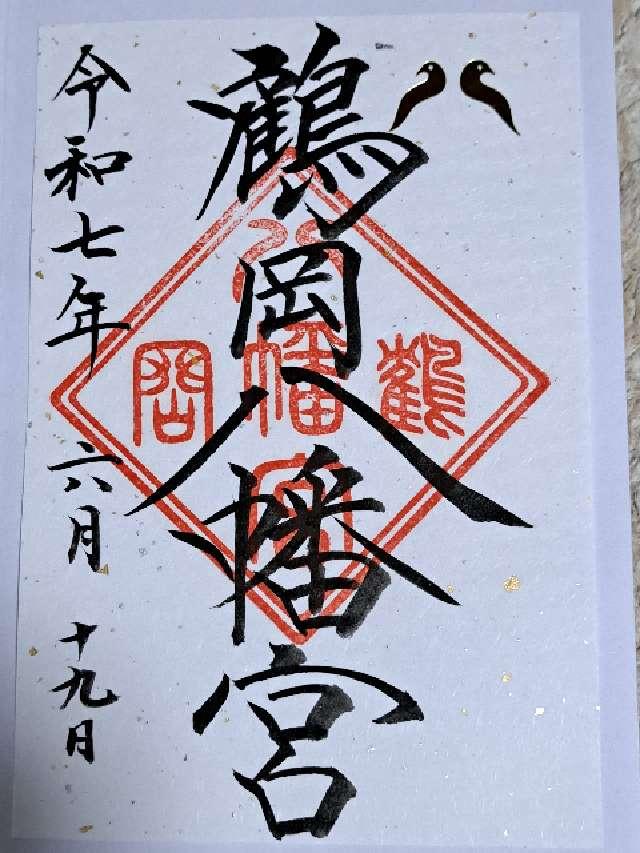 鶴岡八幡宮
鶴
八幡宮
岡
令和七年 六月 十九日